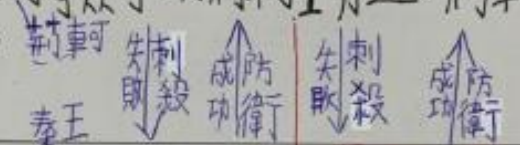 荊軻
秦王
失敗
刺殺
成功
防衛
失敗
刺殺
成功
防衛